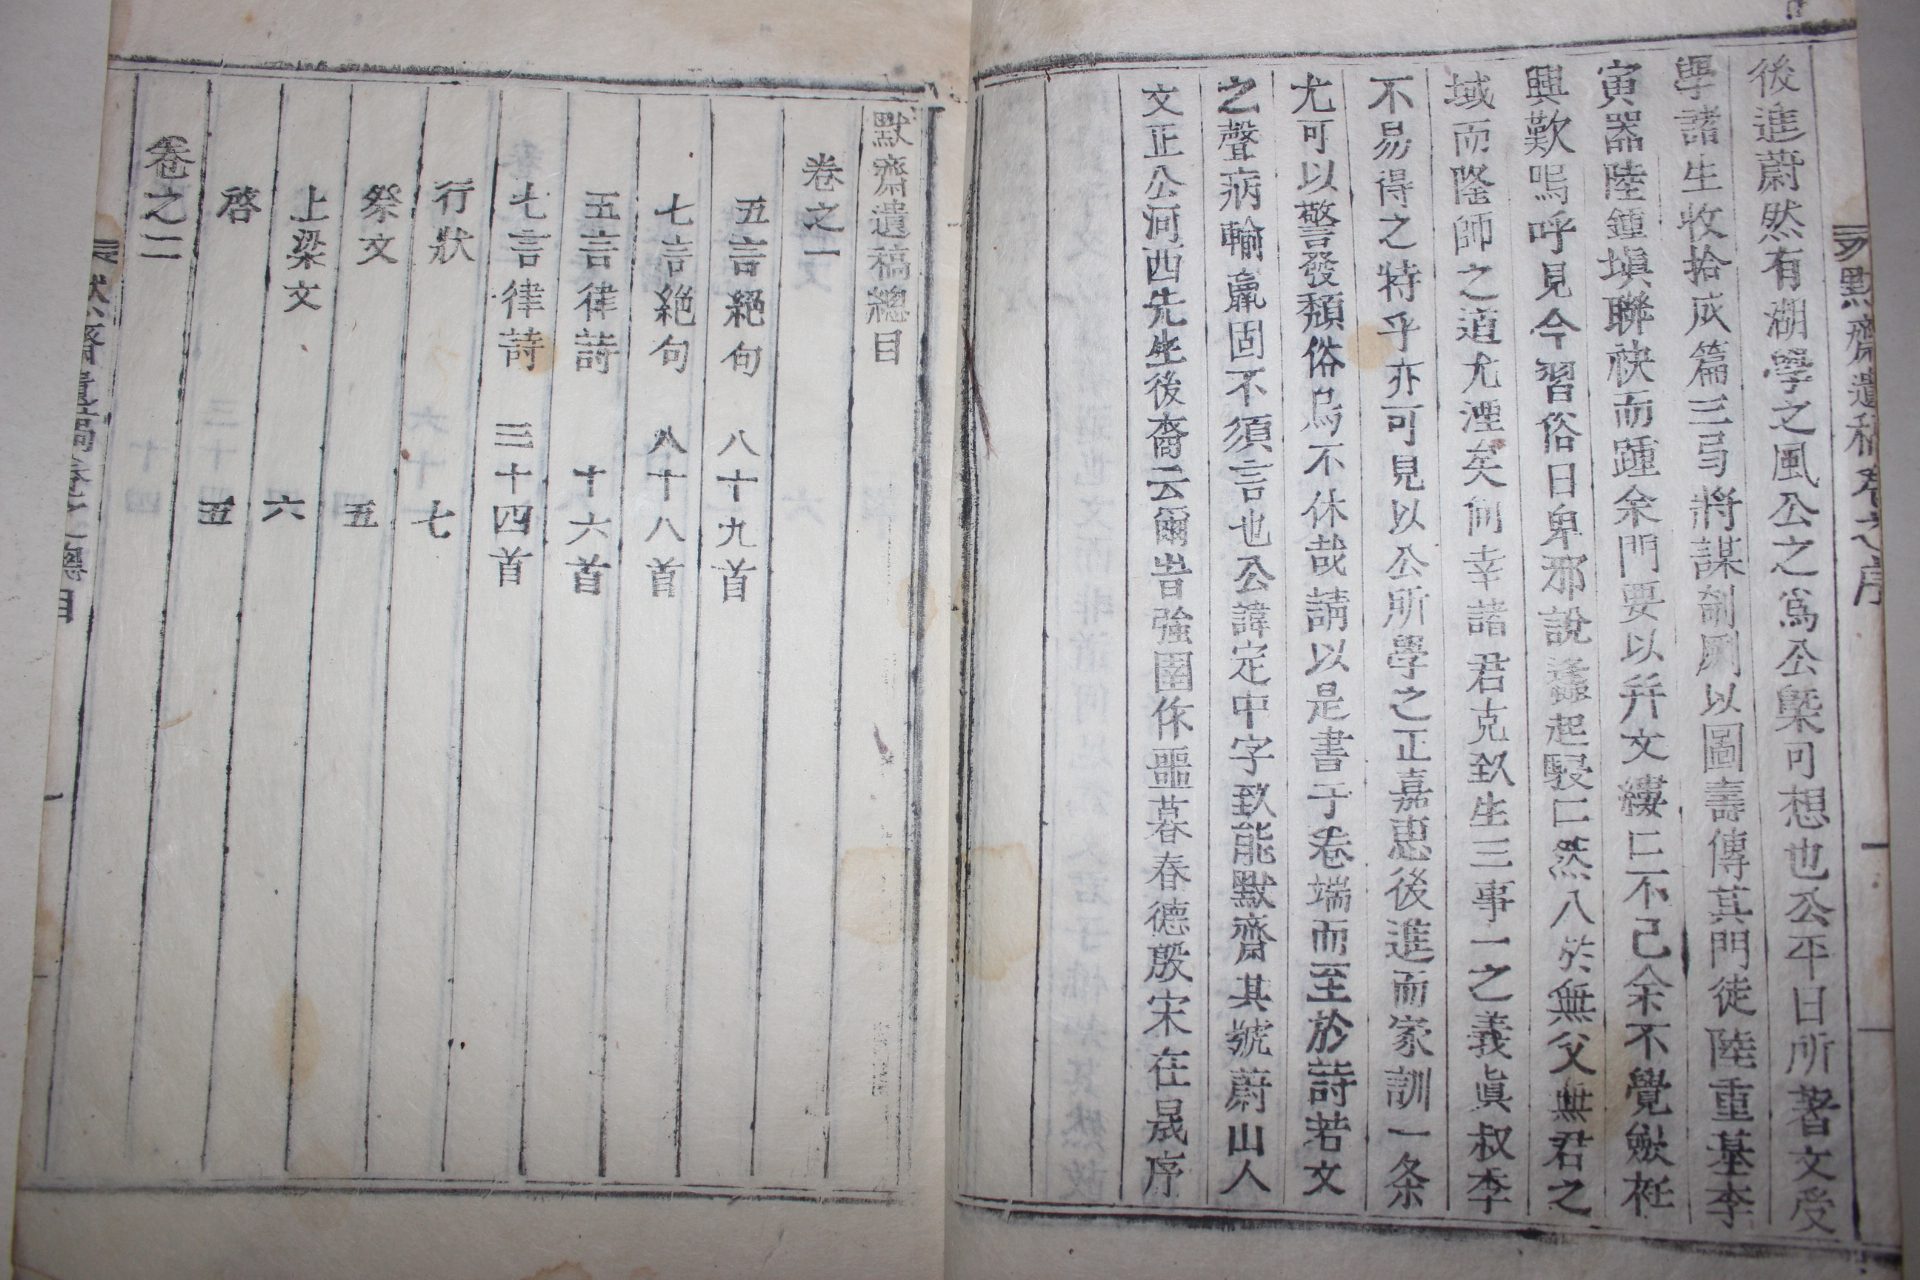 默齋遺稿卷之序
後進蔚然有湖學之風公之爲公槩可想也公平日所著文受
學諸生收拾成篇三弓將謀剞劂以圖壽傳其門徒陸重基李
寅器陸鍾塤聯袂而踵余門要以弁文縷〻不已余不覺歔袵
興歎嗚呼見今習俗日卑邪說蠭起駸〻然入於無父無君之
域而隆師之道尤湮矣何幸諸君克致生三事一之義眞叔季
不易得之特乎亦可見以公所學之正嘉惠後進而家訓一条
尤可以警發頹俗烏不休哉請以是書于卷端而至於詩若文
之聲病輸贏固不須言也公諱定中字致能默齋其號蔚山人
文正公河西先生後裔云爾旹強圉作噩暮春德殷宋在晟序
默齋遺稿總目
卷之一
五言絕句 八十九首
七言絕句 八十八首
五言律詩 十六首
七言律詩 三十四首
行狀 七
祭文 五
上梁文 六
啓 五
卷之二
默齋遺稿卷之總目